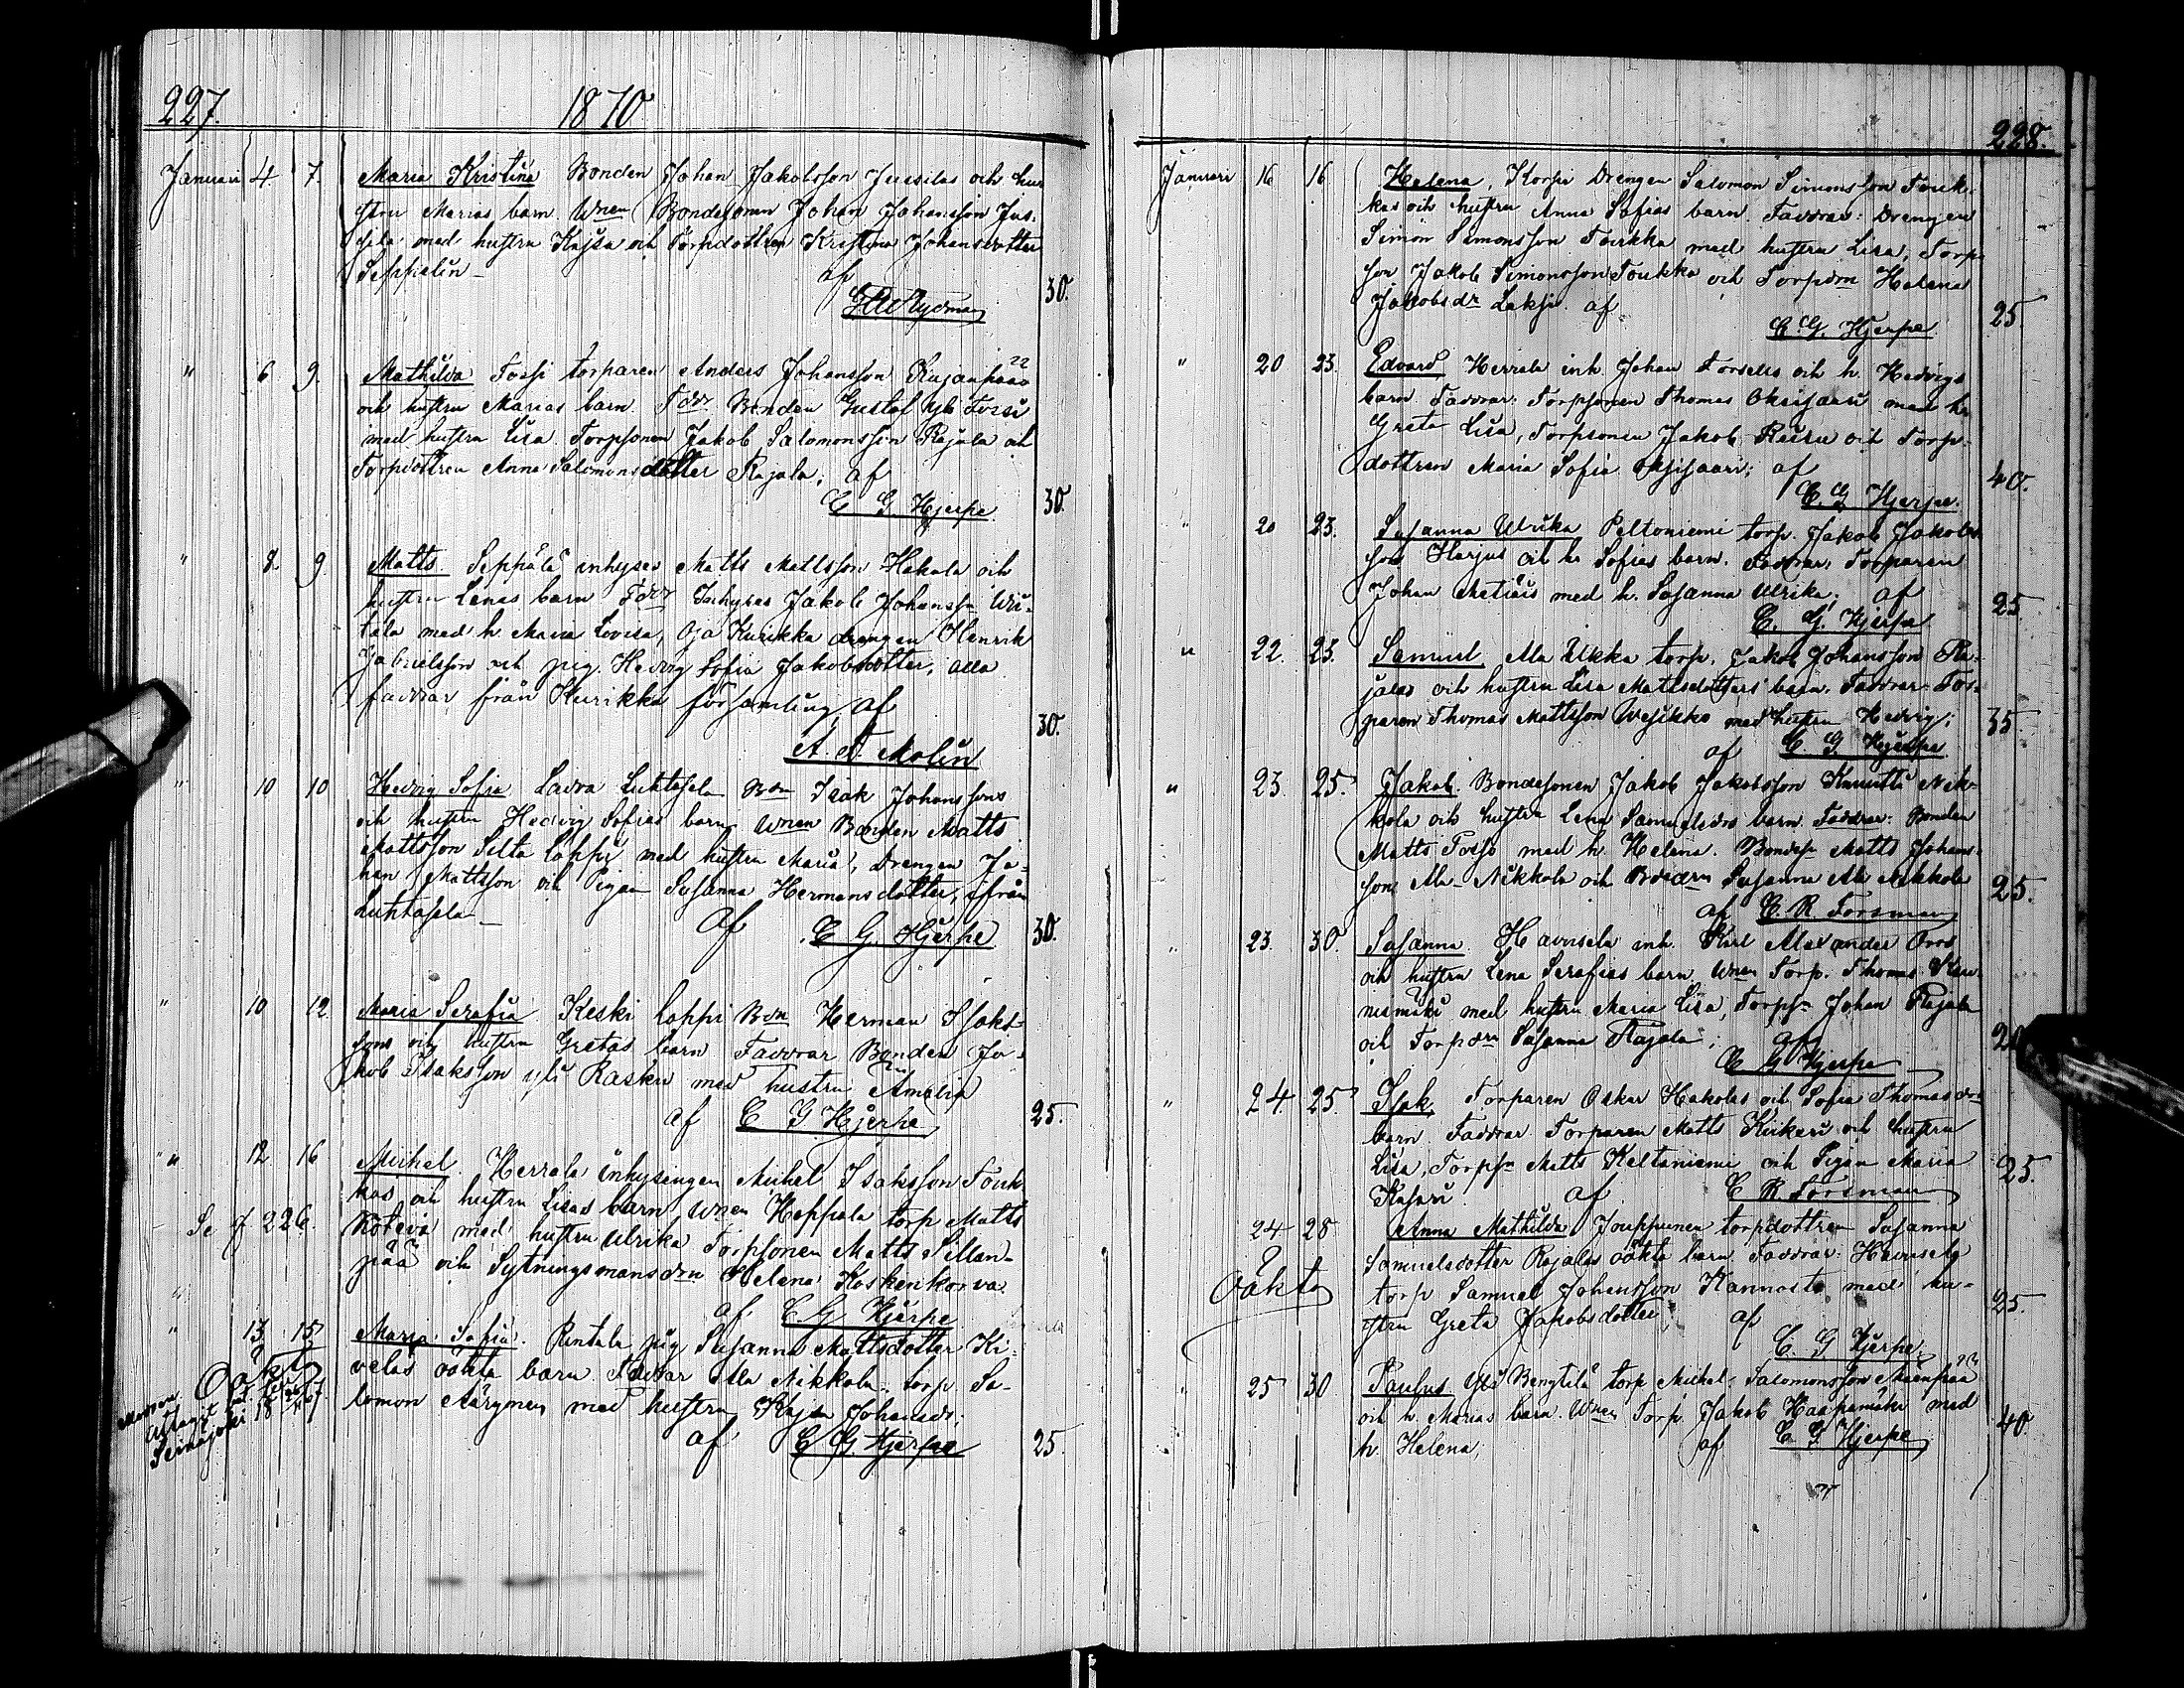 227.
1870
Januari 4. 7. Maria Kristina Bonden Johan Jakobsson Jussilas och hu
stru Marias barn. Wnen Bondesonen Johan Johansson Jus,
sila med hustru Kajsa och Torpdottren Kristina Johansdotter
Seppelin
af
30.
" 6. 9. Mathilda Tossi torparen Anders Johansson Kujanpääs
och hustru Marias barn. Fddr Bonden Gustaf yli Tossi
med hustru Lisa. Torpsonen Jakob Salomonsson Rajala och
Torpdottren Anna Salomonsdotter Rajala; af
C G. Hjerpe 30.
" 8. 9. Matts. Seppälä inhyses Matts Mattsson Hakala och
hustru Lenas barn Fddr Inhyses Jakob Johanss Wii-
tala med h. Maria Lovisa, Oja Kurikka drengen Henrik
Gabrielsson och pig. Hedvig Sofia Jakobsdotter, alla
faddrar från Kurikka församling, af
30.
A. F. Molin
" 10 10 Hedvig Sofia Ladva Luhtasela Bdn Isak Johanssons
och hustru Hedvig Sofias barn Wnen Bonden Matts
Mattsson Silta loppi med hustru Maria, Drengen Jo-
han Mattsson och Pigan Susanna Hermansdotter, ifrån
Luhtasela
af C G. Hjerpe 30.
" 10 12 Maria Serafia Keski loppi Bdn Herman Isaks-
sons och hustru Gretas barn Faddrar Bonden Ja-
kob Isaksson yli Rasku med hustru Amalia
af C G Hjerpe 25.
" 12 16 Michel. Herrala inhysingen Michel Isaksson Touk
kas och hustru Lisas barn Wnen Heppala torp Matts
Se f 226. Koteva med hustru Ulrika Torpsonen Matts Sillan-
pää och Sytningsmansdrn Helena Koskenkorva.
af C. G Hjerpe
" 13 15 Maria Sofia. Rintala pig Susanna Mattsdotter Ki-
Oäkta velas oäkta barn Faddrar Ala Nikkola torp Sa-
lomon med hustru Kajsa Johansdr.
af C G. Hjerpe 25.
228.
Januari 16 16 Helena, Korpi Drengen Salomon Simonsson Touk-
kas och hustru Anna Sofias barn. Faddrar: Drengen
Simon Simonsson Toukka med hustru Lisa, Torp-
son Jakob Simonsson Toukka och Torpdrn Helena
Jakobsdr Leksi. af
C. G. Hjerpe 25.
" 20 23. Edvard, Herrala inh. Johan Forsells och h. Hedvigs
barn. Faddrar: Torpsonen Thomas Oksisaari med h
Greta Lisa, Torpsonen Jakob och Torp-
dottren Maria Sofia Oksisaari; af
C. G Hjerpe. 40.
" 20 23. Susanna Ulrika Peltoniemi torp. Jakob Jakobs
son Harjus och h. Sofias barn. Faddrar, Torparen
Johan med h. Susanna Ulrika; af
C. G. Hjerpe 25
" 22. 23. Samuel Ala Ukka torp. Jakob Johansson Ra-
jalas och hustru Lisa Mattsdotters barn. Faddrar Tor-
paren Thomas Mattsson Wesikko med hustru Hedvig;
af C. G. Hjerpe 35.
" 23. 25. Jakob. Bondesonen Jakob Jakobsson Knuutti Nik-
kola och hustru Lena Samuelsdrs barn. Faddrar: Bonden
Matts Tossi med h. Helena. Bondesn Matts Johans-
son Ala-Nikkola och Bdedrn Susanna Ala Nikkola
af C. R Forsman 25.
" 23. 30. Susanna. Havusela inh. Karl Alexander Oros
och hustru Lena Serafias barn Wnen Torp. Thomas
med hustru Maria Lisa, Torpsn Johan Rajala
och Torpdrn Susanna Rajala; af
C G Hjerpe
" 24. 25. Isak Torparen Oskar Hakolas och Sofia Thomasdrs
barn. Faddrar Torparen Matts Kiikeri och hustru
Lisa, Torpsn Matts Keltaniemi och Pigan Maria
af C R Forsman 25.
24 28 Anna Mathilda Jouppunen torpdottren Susanna
Samuelsdotter Rajalas oäkta barn Faddrar: Havusela
Oäkta torp Samuel Johansson Kannosto med hu-
stru Greta Jakobsdotter; af 25.
C. G Hjerpe.
" 25 30 Paulus Yli Bengtilä torp Michel Salomonsson Mäenpää
och h. Marias barn. Wnen Torp. Jakob Haapamäki med
h. Helena; af C. G. Hjerpe 40